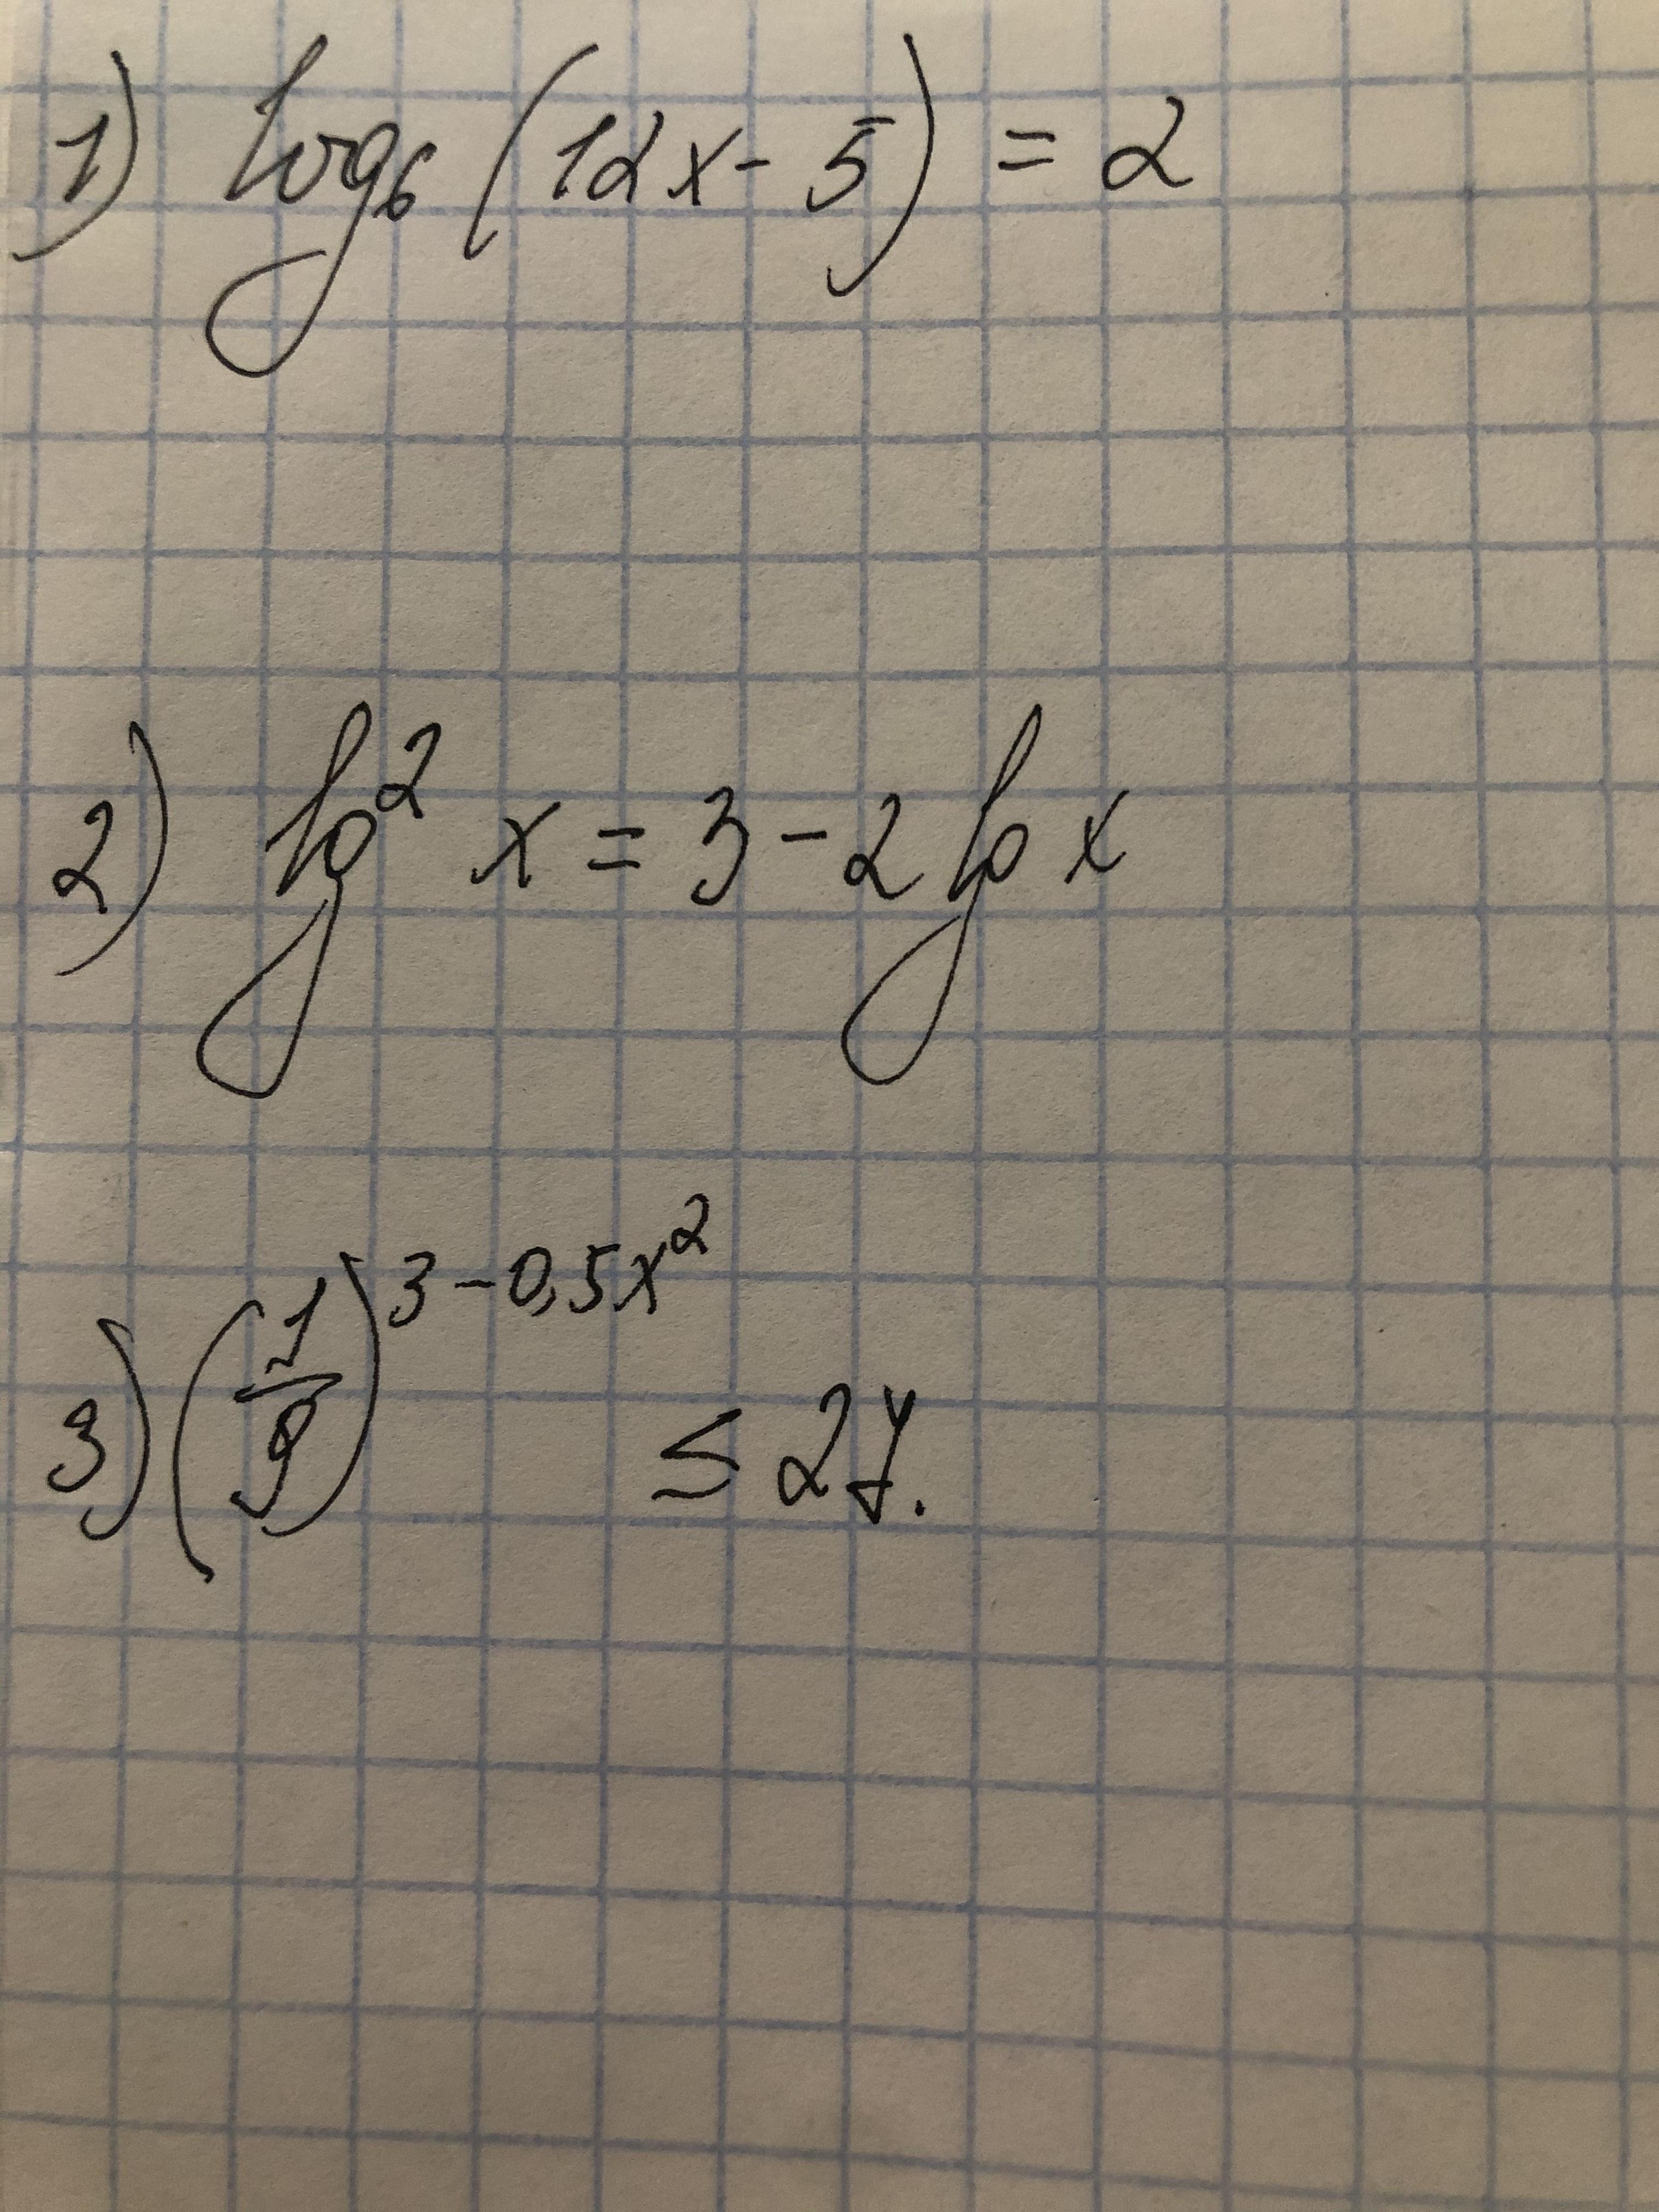 1) log₆(12x-5) = 2
2) lg² x = 3 - 2 lg x
3) (1/9)^(3-0,5x²) ≤ 27.